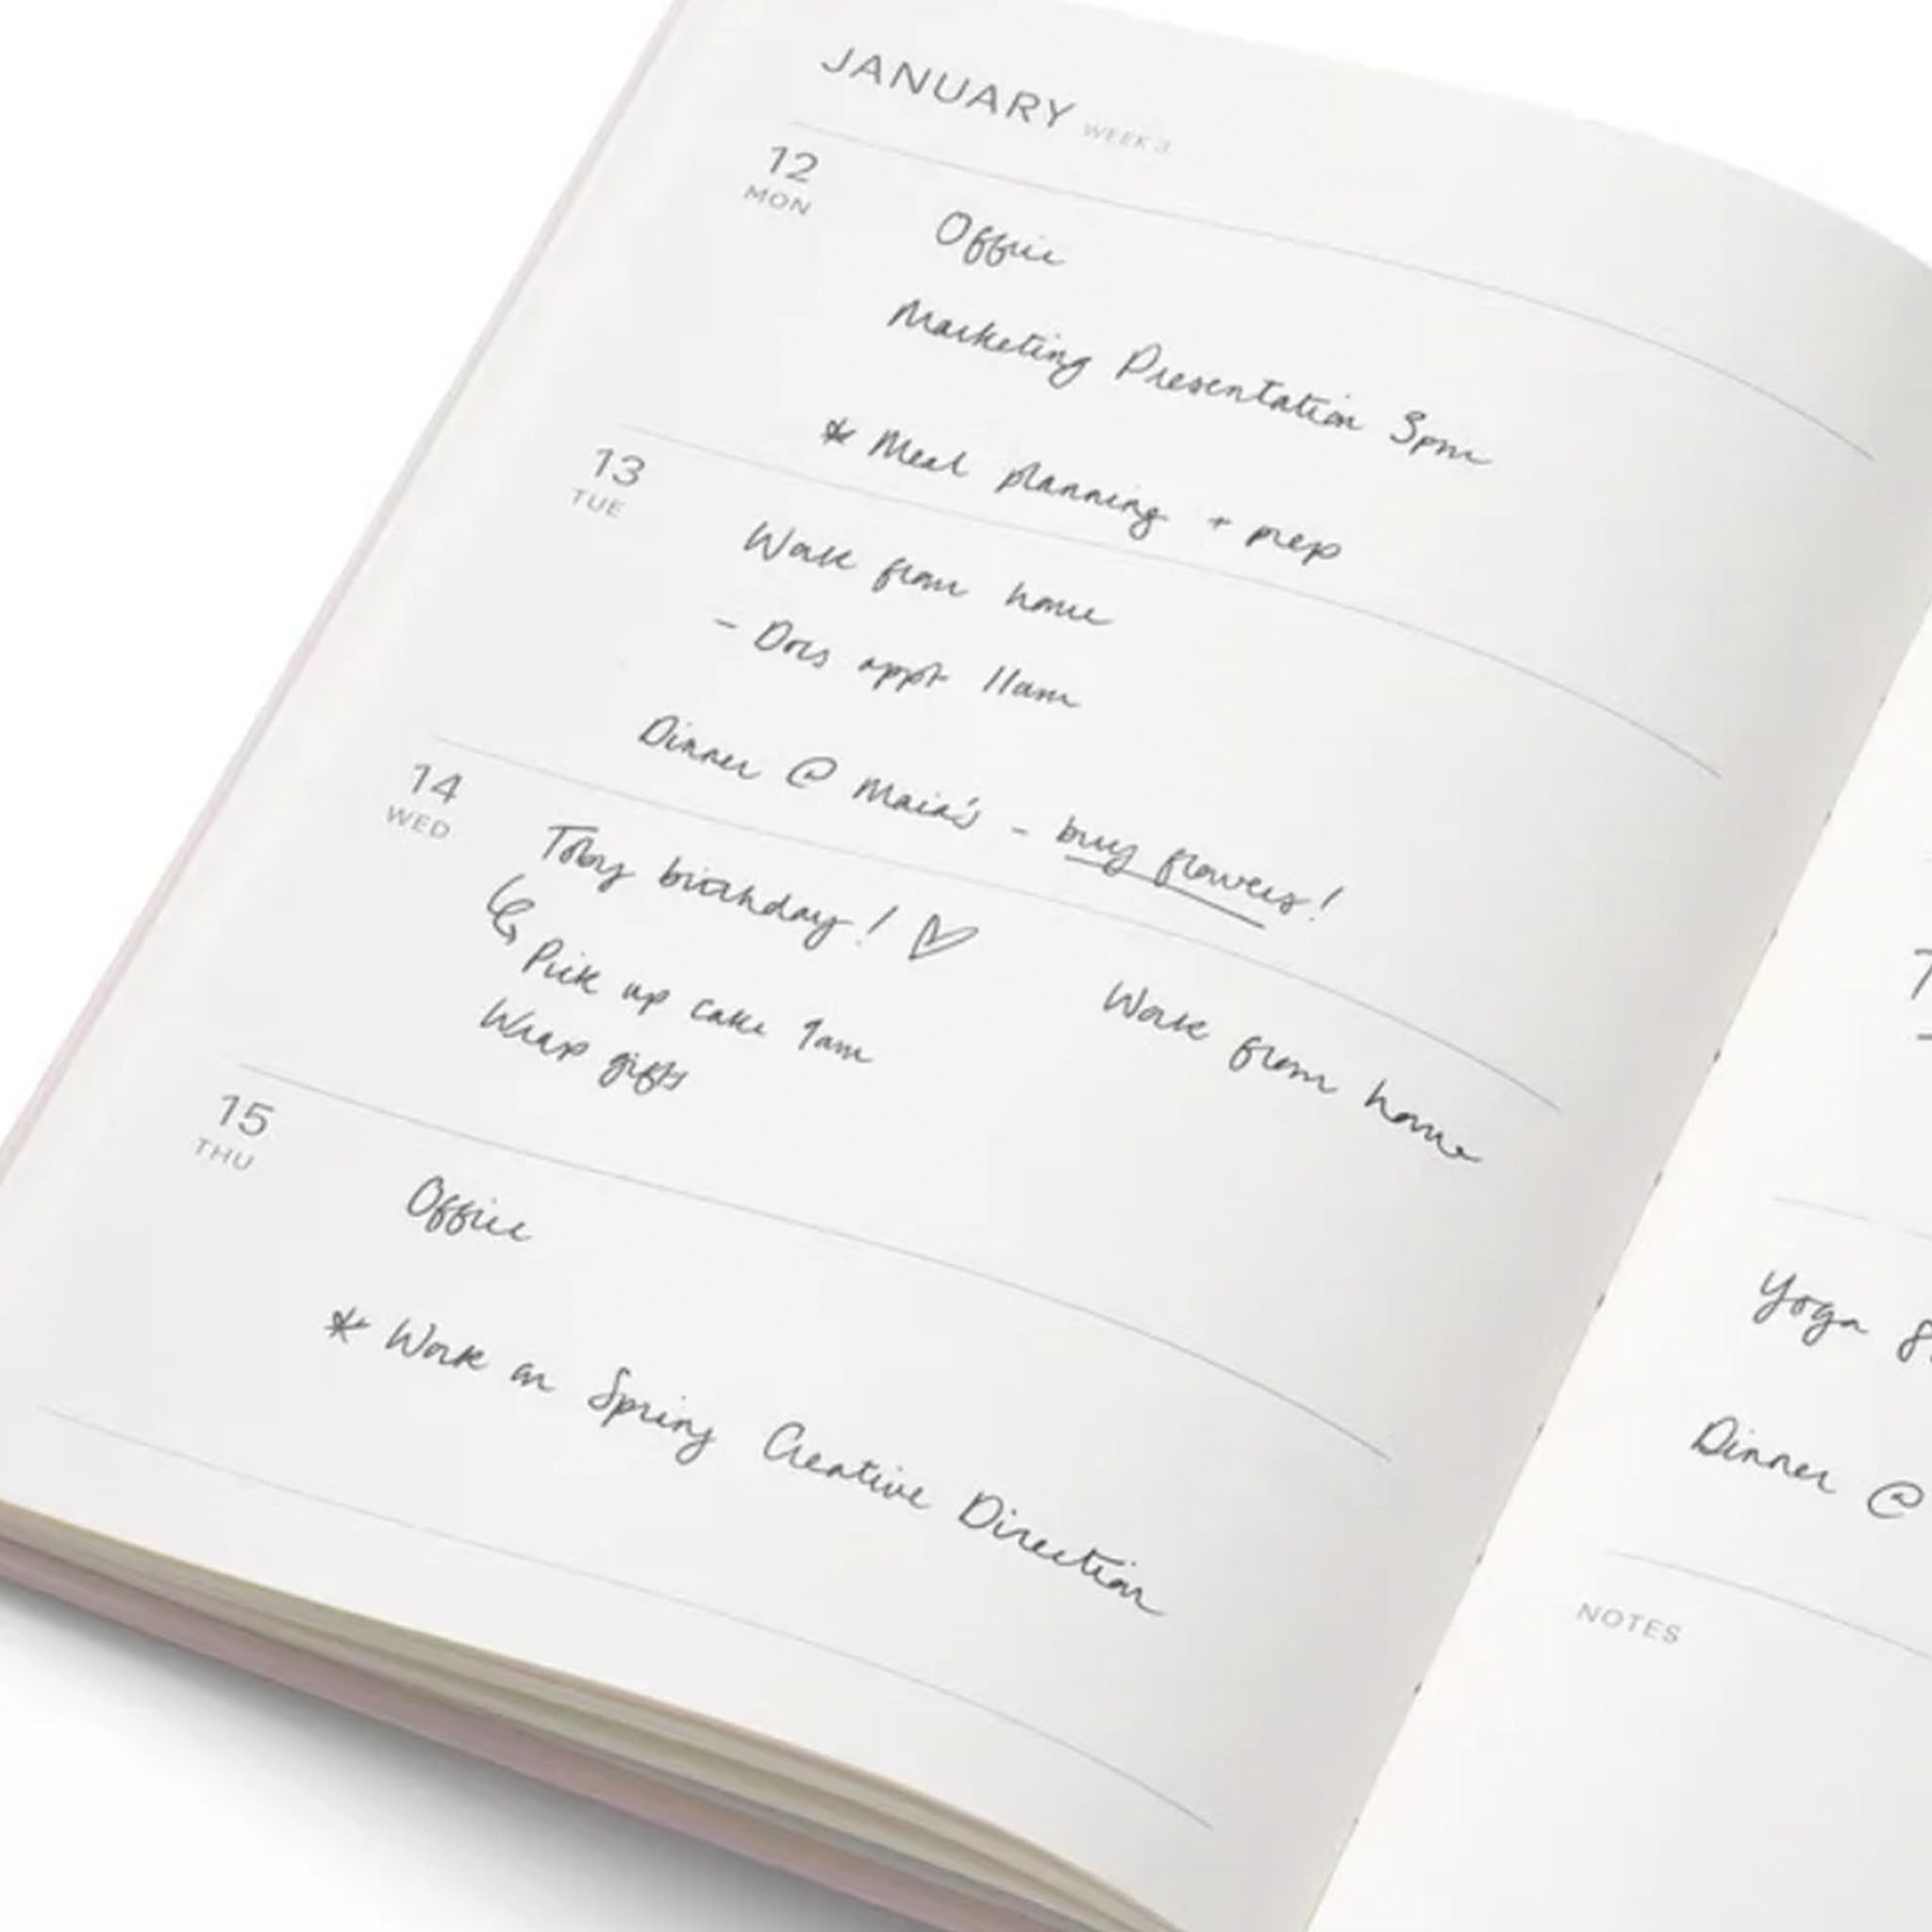 JANUARY WEEK 3
12
MON
Office
Marketing Presentation 3pm
* Meal planning + prep
13
TUE
Work from home
- Docs appt 11am
Dinner @ Maia's - buy flowers!
14
WED
Toby birthday! ♡
Pick up cake 9am
Wrap gifts
Work from home
15
THU
Office
* Work on Spring Creative Direction
Yoga
Dinner @
NOTES